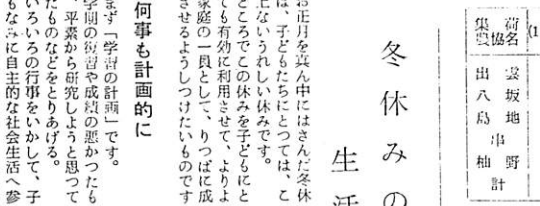 荷名
集農協
(1
雲坂地
出八島
串野
柚
計
冬休みの
生活
お正月を真ん中にはさんだ冬休
は、子どもたちにとつては、こ
上ないうれしい休みです。
ところでこの休みを子どもにと
ても有効に利用させて、よりよ
家庭の一員として、りつぱに成
させるようしつけたいものです
何事も計画的に
まず「学習の計画」です。
学期の復習や成績の悪かつたも
、平素から研究しようと思つて
たものなどをとりあげる。
いろいろの行事をいかして、子
もなみに自主的な社会生活へ参